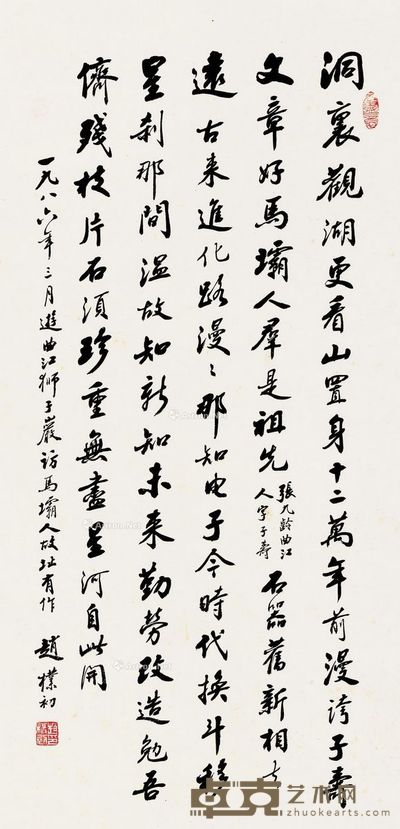 洞裏觀湖更看山置身十二萬年前漫誇子壽
文章好馬壩人群是祖先
張九齡曲江
人字子壽
石器舊新相去
遠古來進化路漫〻那知电子今時代換斗移
星刹那間溫故知新知未来勤勞改造勉吾
儕殘枝片石須珍重無盡星河自此開
一九八六年三月遊曲江獅子巖訪馬壩人故址有作
趙樸初
卓克艺术网
www.zhuokearts.com